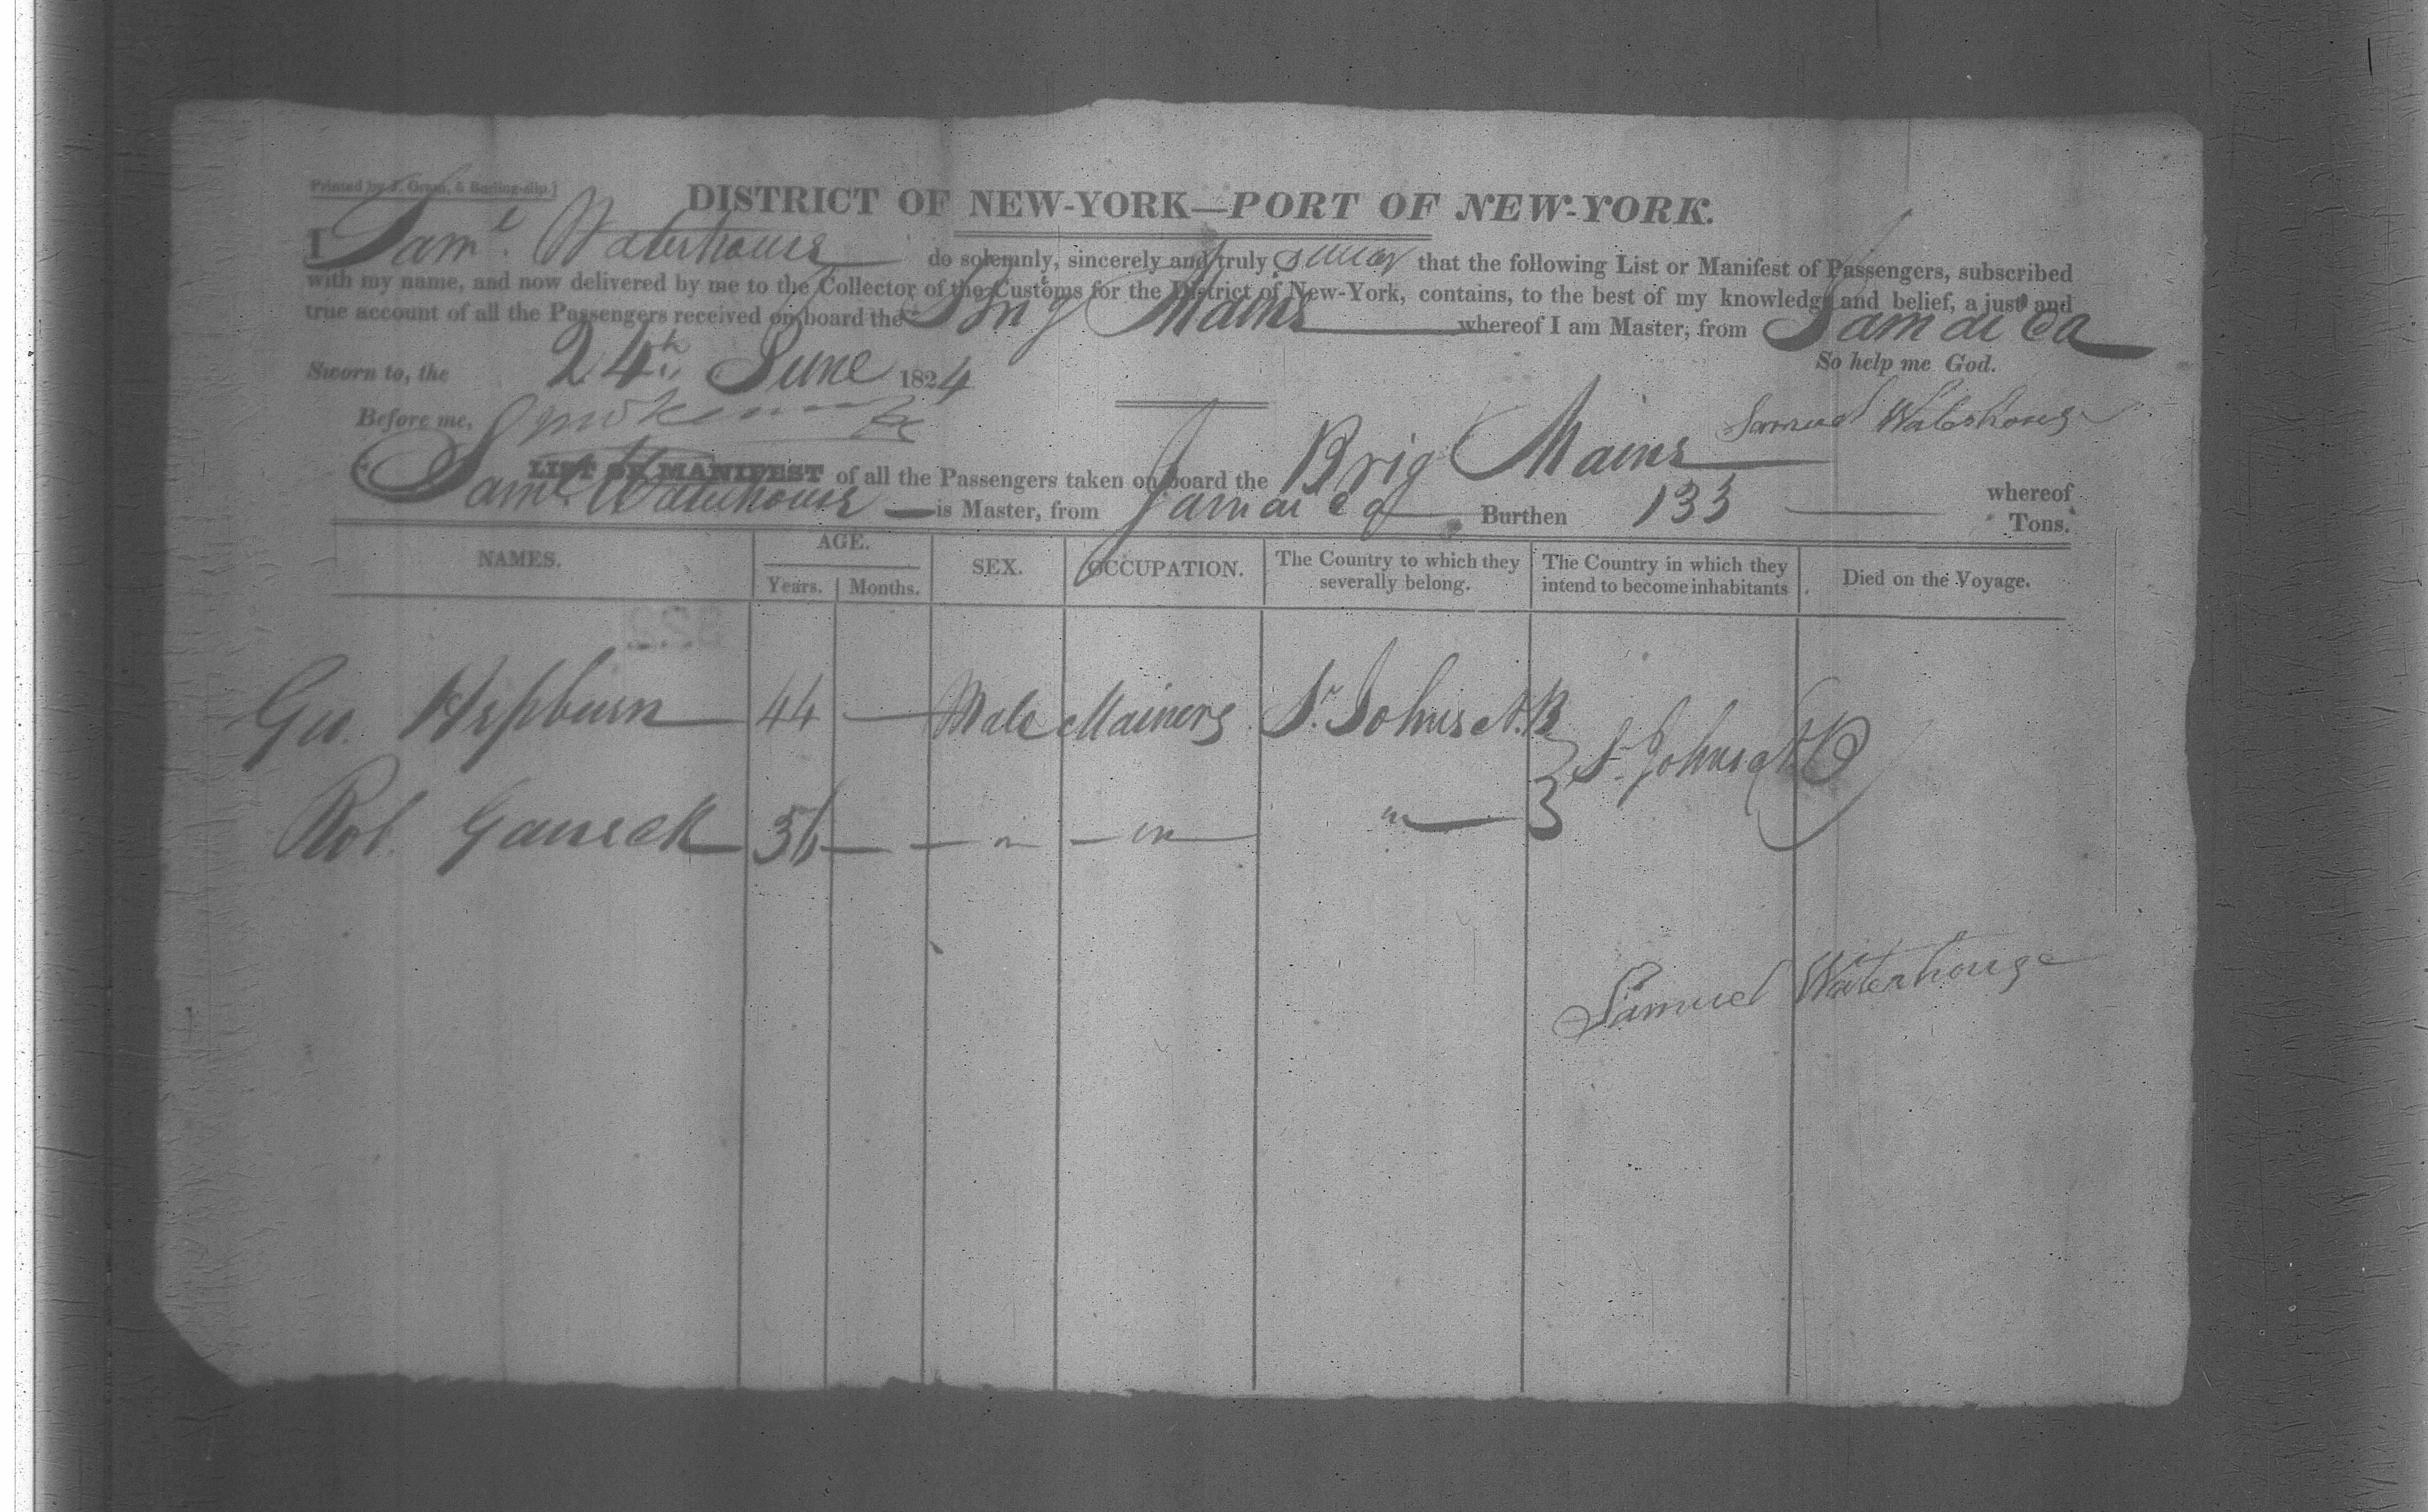 DISTRICT OF NEW-YORK—PORT OF NEW-YORK.
I Saml. Waterhouse do solemnly, sincerely and truly swear that the following List or Manifest of Passengers, subscribed
with my name, and now delivered by me to the Collector of the Customs for the District of New-York, contains, to the best of my knowledge and belief, a just and
true account of all the Passengers received on board the Brig Maine whereof I am Master, from Jamaica
So help me God.
Sworn to, the 24th June 1824
Before me,
Samuel Waterhouse
LIST OR MANIFEST of all the Passengers taken on board the Brig Maine whereof
Saml. Waterhouse is Master, from Jamaica Burthen 133 Tons.
NAMES. AGE. SEX. OCCUPATION. The Country to which they severally belong. The Country in which they intend to become inhabitants Died on the Voyage.
Years. Months.
Geo. Hepburn 44 — Male Mainers St. Johns N.B
St. Johns N.B
Rob. 36 — " " "
Samuel Waterhouse